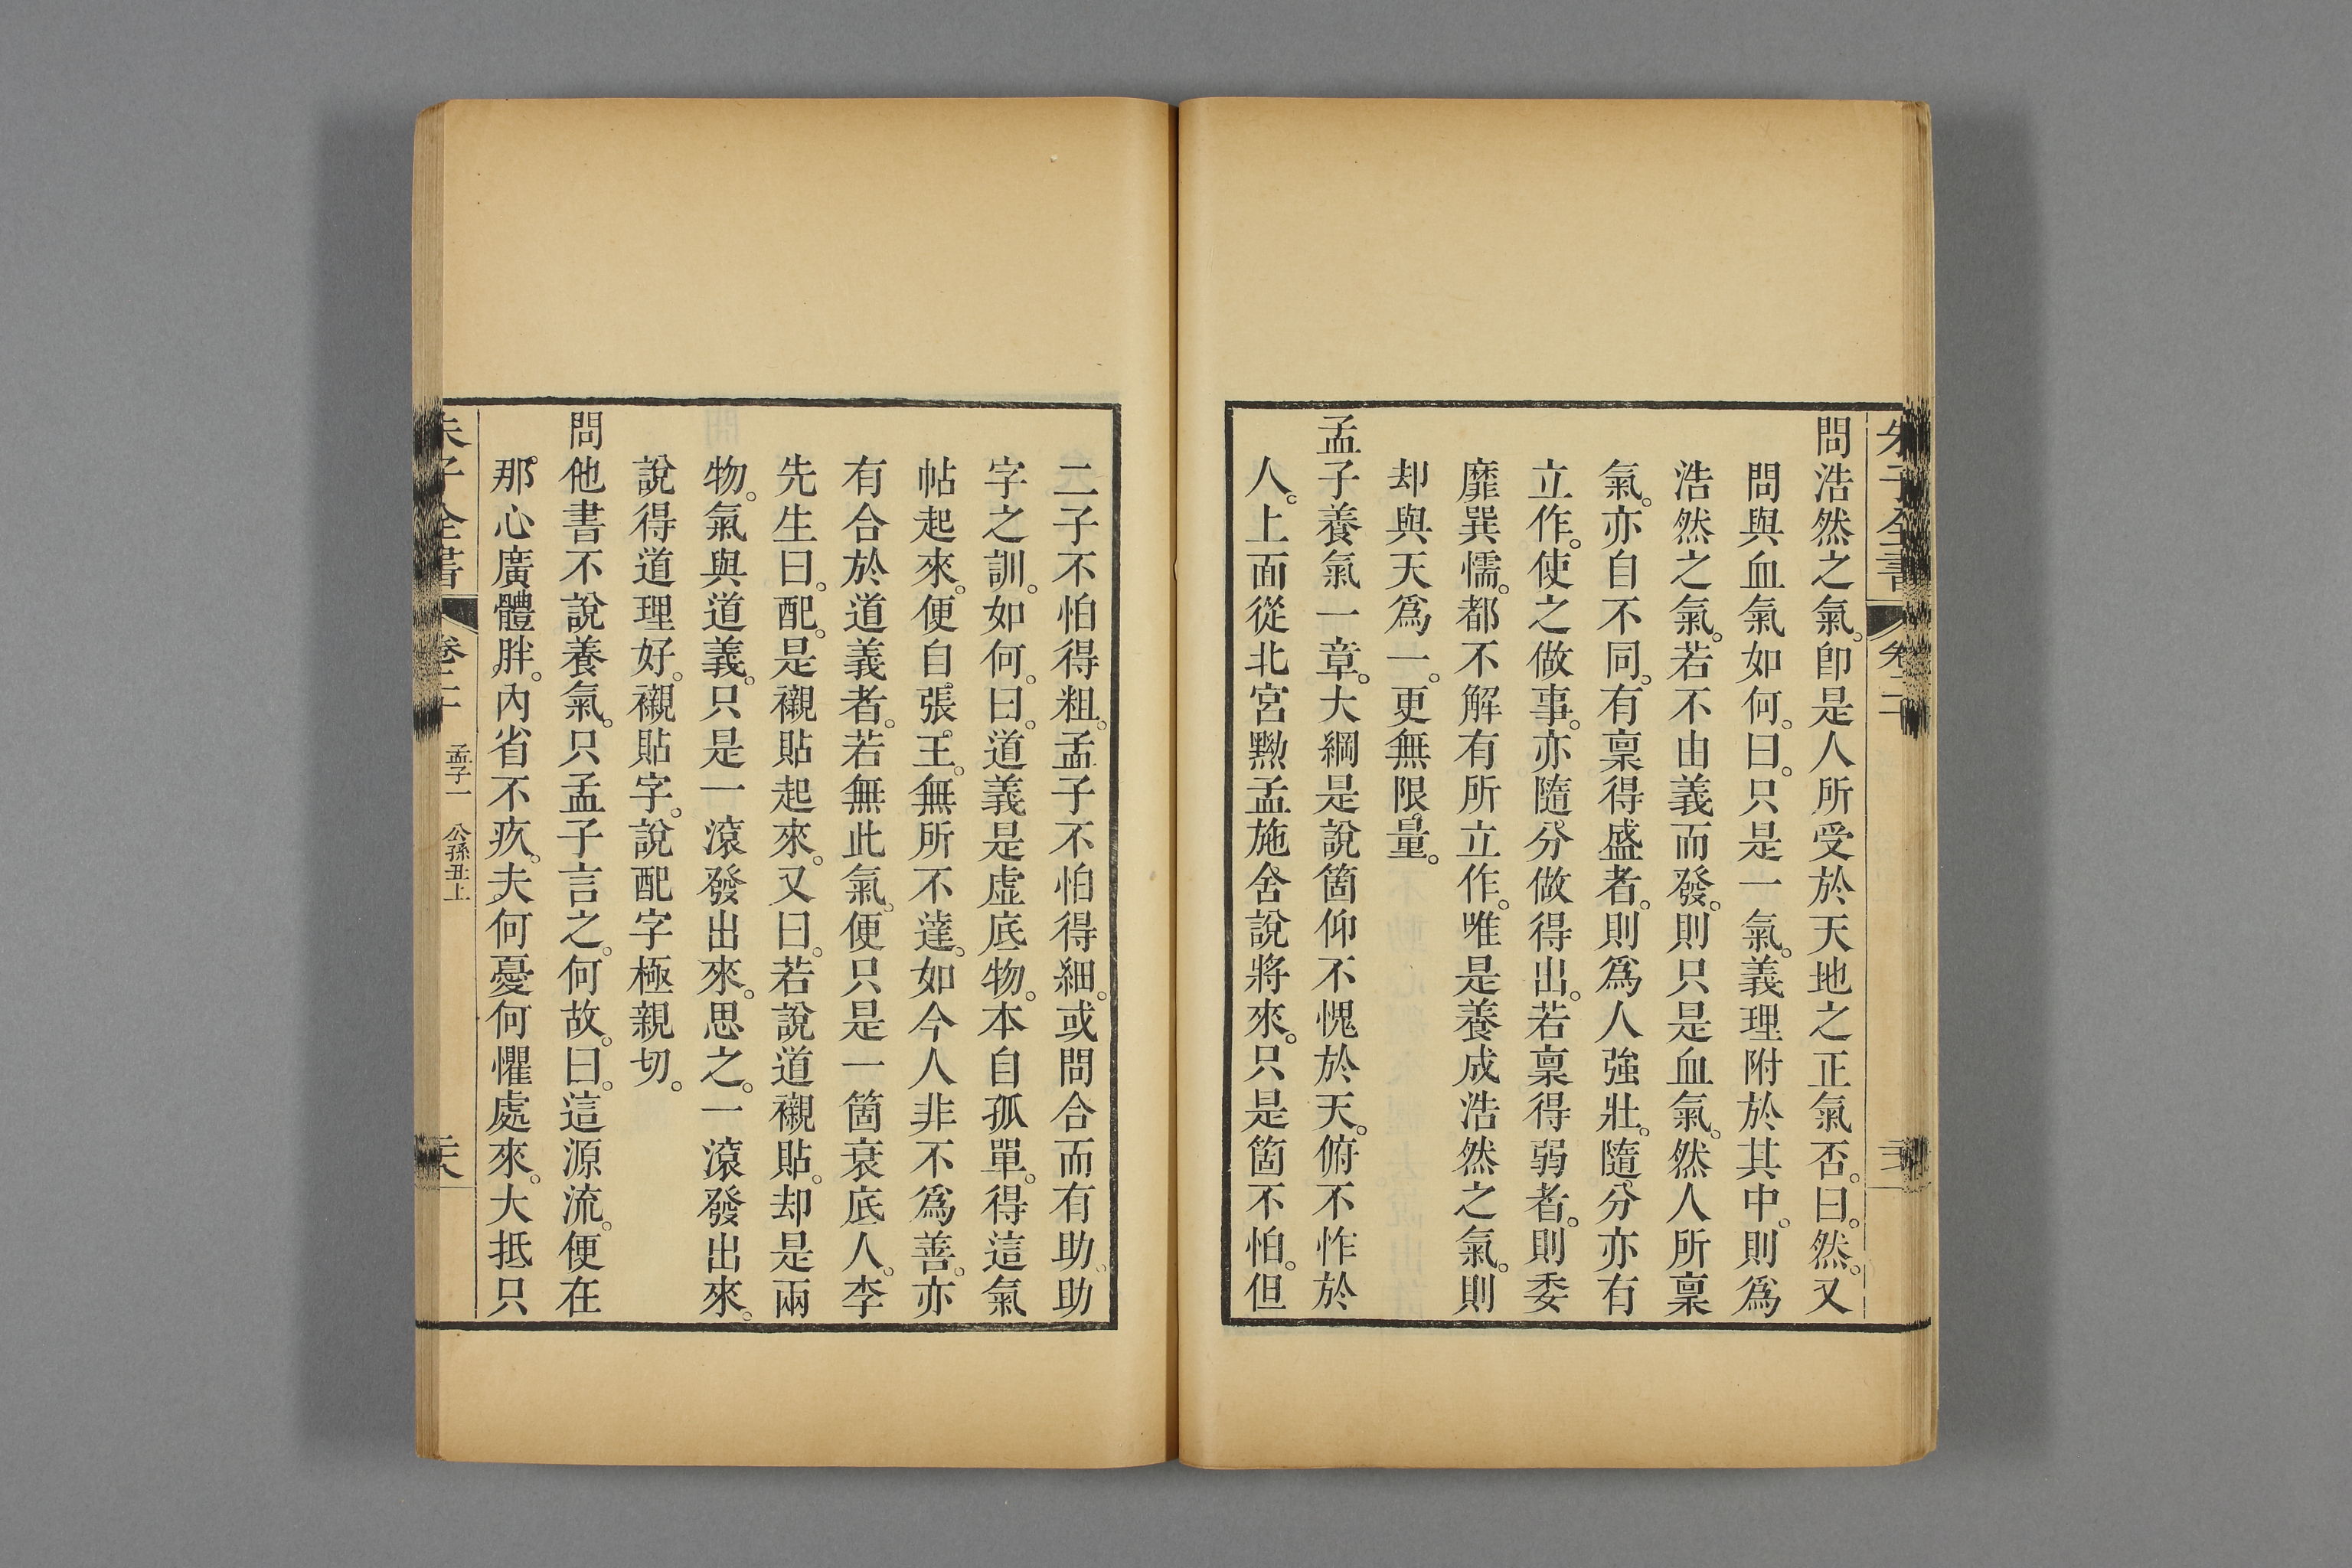 朱子全書 卷二十
問浩然之氣。卽是人所受於天地之正氣否。曰。然。又
問與血氣如何。曰。只是一氣。義理附於其中。則爲
浩然之氣。若不由義而發。則只是血氣。然人所稟
氣。亦自不同。有稟得盛者。則爲人強壯。隨分亦有
立作。使之做事。亦隨分做得出。若稟得弱者。則委
靡巽懦。都不解有所立作。唯是養成浩然之氣。則
却與天爲一。更無限量。
孟子養氣一章。大綱是說箇仰不愧於天。俯不怍於
人。上面從北宮黝孟施舍說將來。只是箇不怕。但
二子不怕得粗。孟子不怕得細。或問合而有助助
字之訓。如何。曰。道義是虛底物。本自孤單。得這氣
帖起來。便自張王。無所不達。如今人非不爲善。亦
有合於道義者。若無此氣。便只是一箇衰底人。李
先生曰。配。是襯貼起來。又曰。若說道襯貼。却是兩
物。氣與道義。只是一滾發出來。思之。一滾發出來。
說得道理好。襯貼字。說配字極親切。
問他書不說養氣。只孟子言之。何故。曰。這源流。便在
那心廣體胖。內省不疚。夫何憂何懼處來。大抵只
朱子全書 卷二十 孟子一 公孫丑上